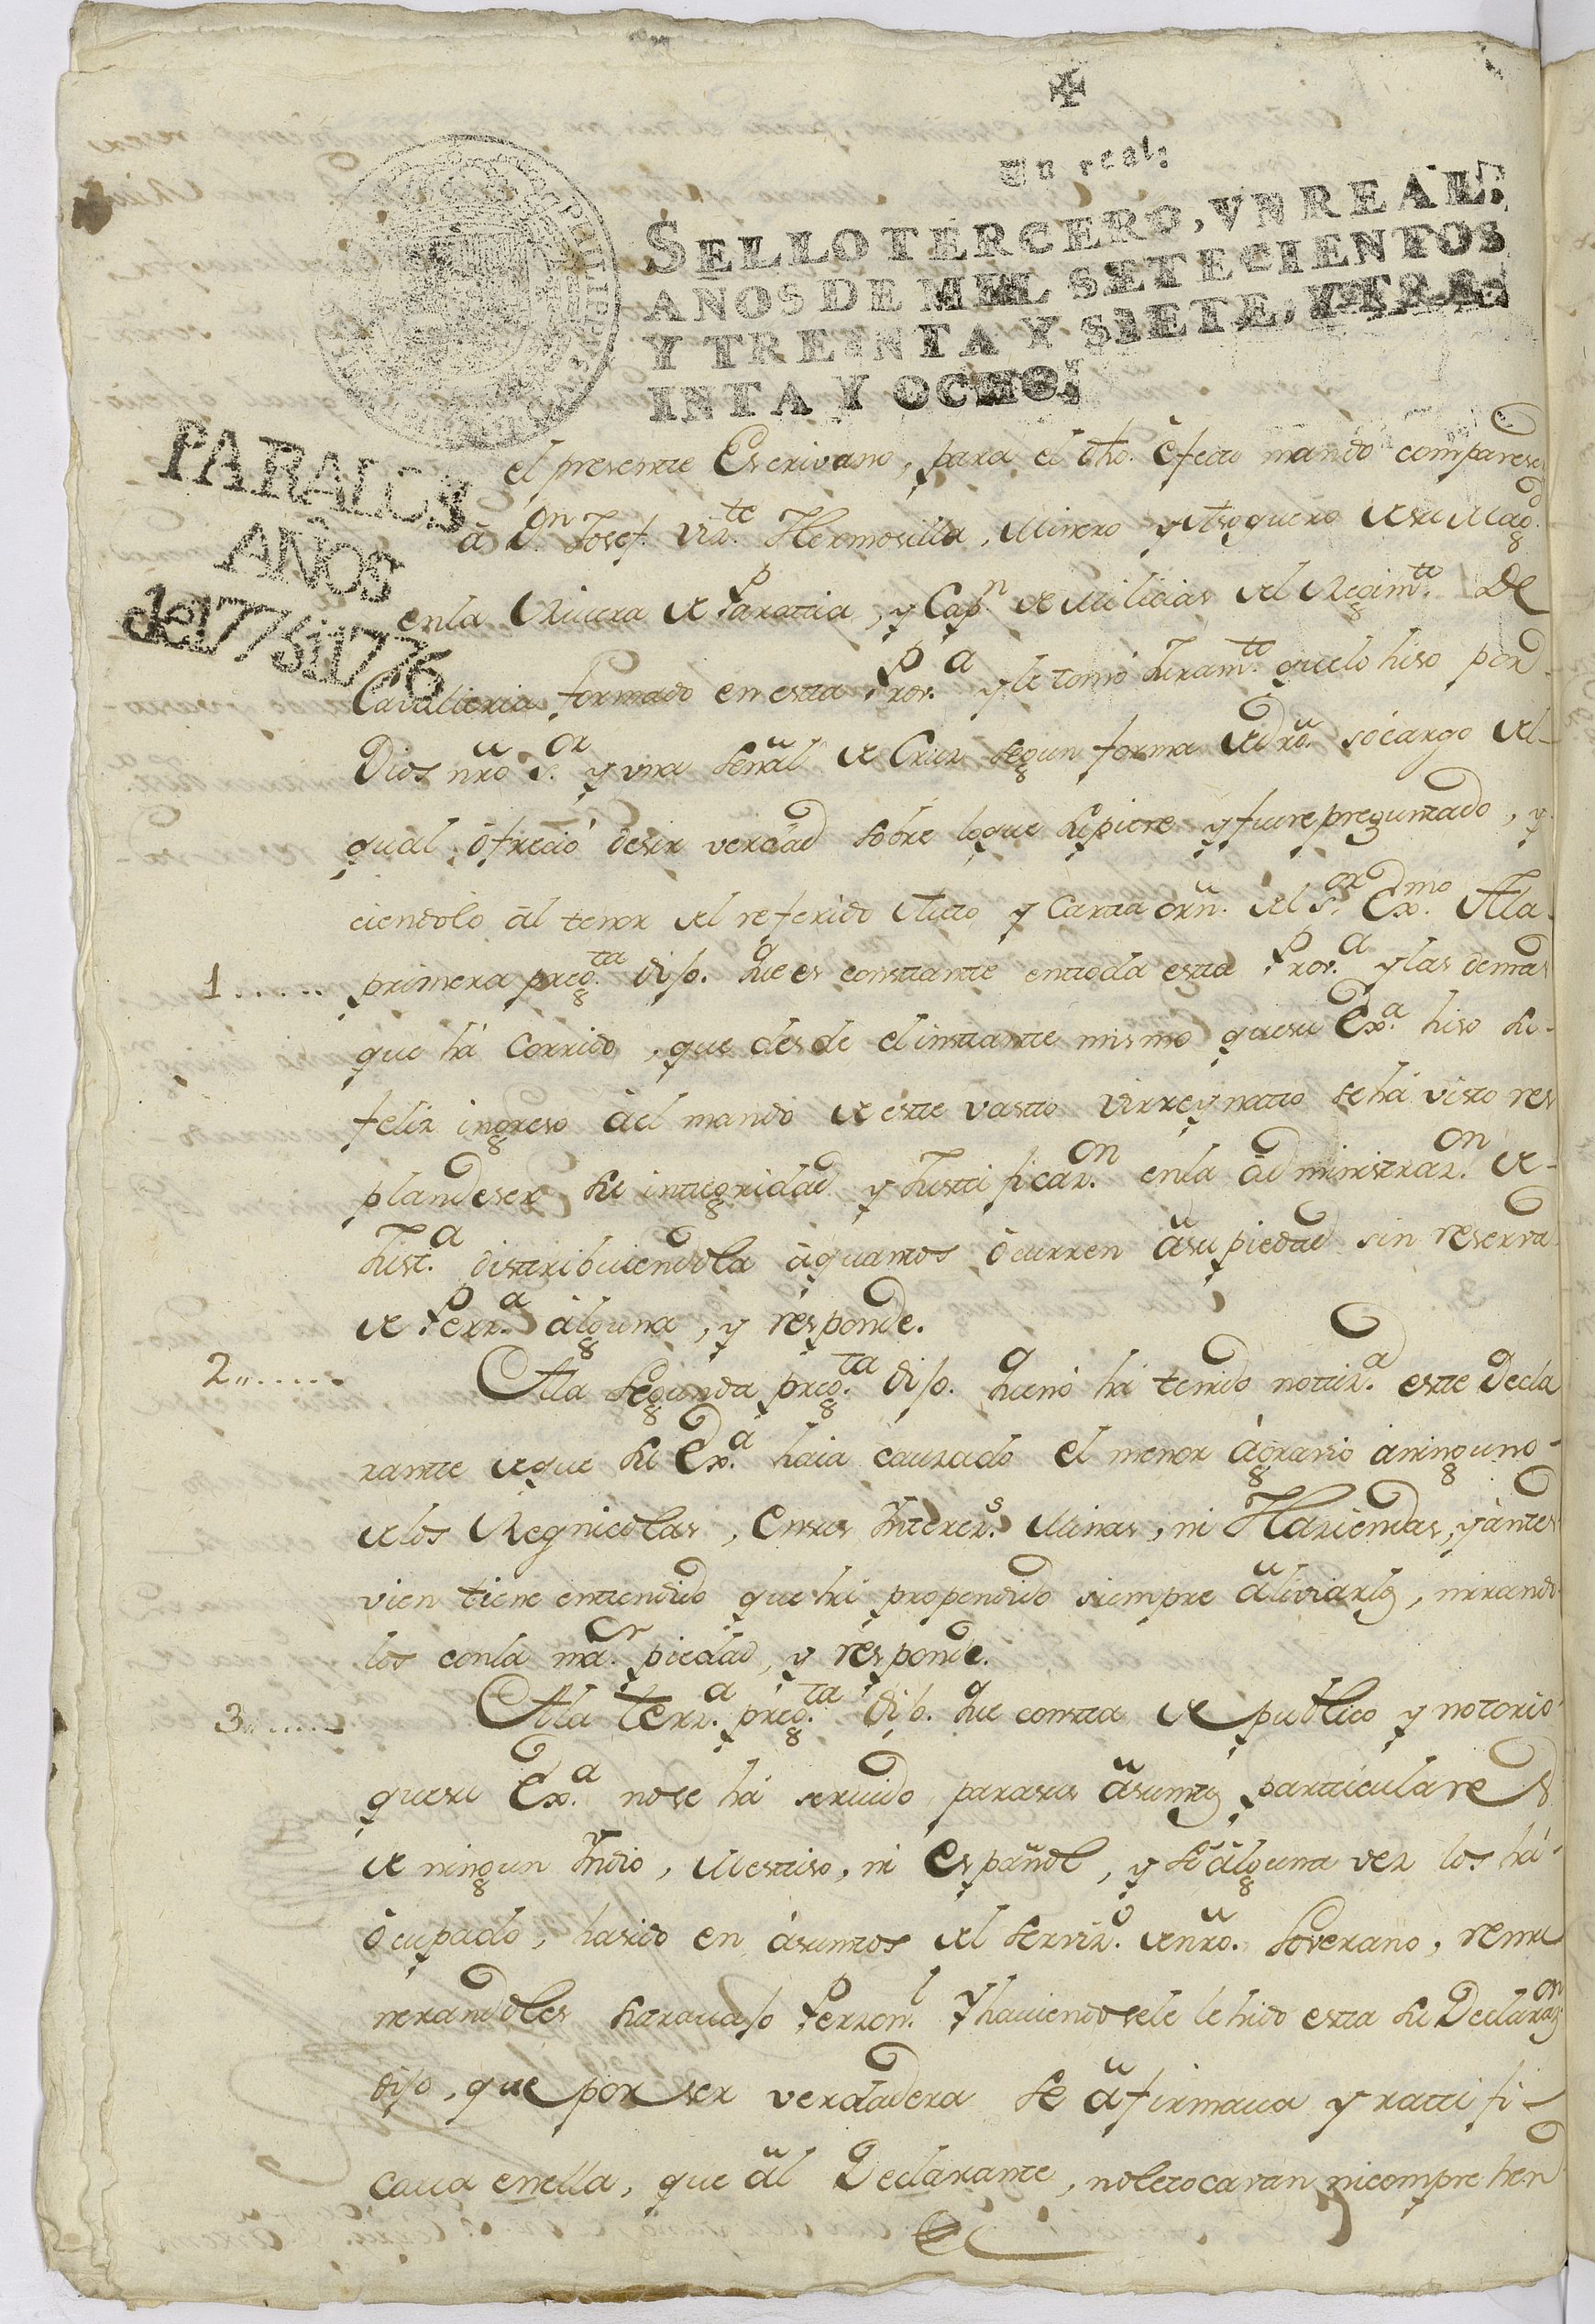 Un real:
SELLO TERCERO, VN REAL,
AÑOS DE MIL SETECIENTOS
Y TREINTA Y SIETE, Y TRE
INTA Y OCHO.
PARA LOS
AÑOS
de 1775 i 1776
el presente Escrivano, para el dho. efecto mando compareser
à Dn. Josef Viz.te Hermosilla, Minero y Asoguero de su Mag.d
en la Rivera de Paratia, y Cap.n de Milicias del Regim.to De
Cavalleria formado en esta Prov.a y le tomó Juram.to que lo hiso por
Dios nro S.or y una señal de Cruz segun forma de dro. só cargo del
qual ofreció desir verdad sobre loque supiere y fuere preguntado, y
ciendolo al tenor del referido Auto y Carta orn. del S.or Ex.mo A la
1...... primera preg.ta dijo. Que es constante en toda esta Prov.a y las demas
que há corrido, que desde el instante mismo que su Ex.a hiso su
feliz ingreso áel mando de este vasto Virreynatto se há visto res
plandeser su integridad y Justificaz.on en la administraz.on de
Just.a distribuiendola à quantos ocurren à su piedad sin reserva
de Perz.a alguna, y responde.
2...... A la segunda preg.ta dijo. Que nó há tenido notiz.a este Decla
rante de que su Ex.a haia cauzado el menor àgravio à ninguno
de los Regnicolas, en sus Interez.s Minas, ni Haziendas, y àntes
vien tiene entendido que há propendido siempre à aliviarlos, mirando
los con la ma.or piedad, y responde.
3...... A la terz.a preg.ta dijo. Que consta de publico y notorio
que su Ex.a no se há servido para sus asuntos particulares
de ningun Indio, Mestiso, ni Español, y si alguna vez los há
ocupado, ha sido en àsuntos del serviz.o de nro. Soverano, remu
nerandoles su travajo Perzon.l Y haviendosele lehido esta su Declaraz.on
dijo, que por ser verdadera se afirmava y ratifi
cava en ella, que al Declarante, no le tocavan ni comprehen